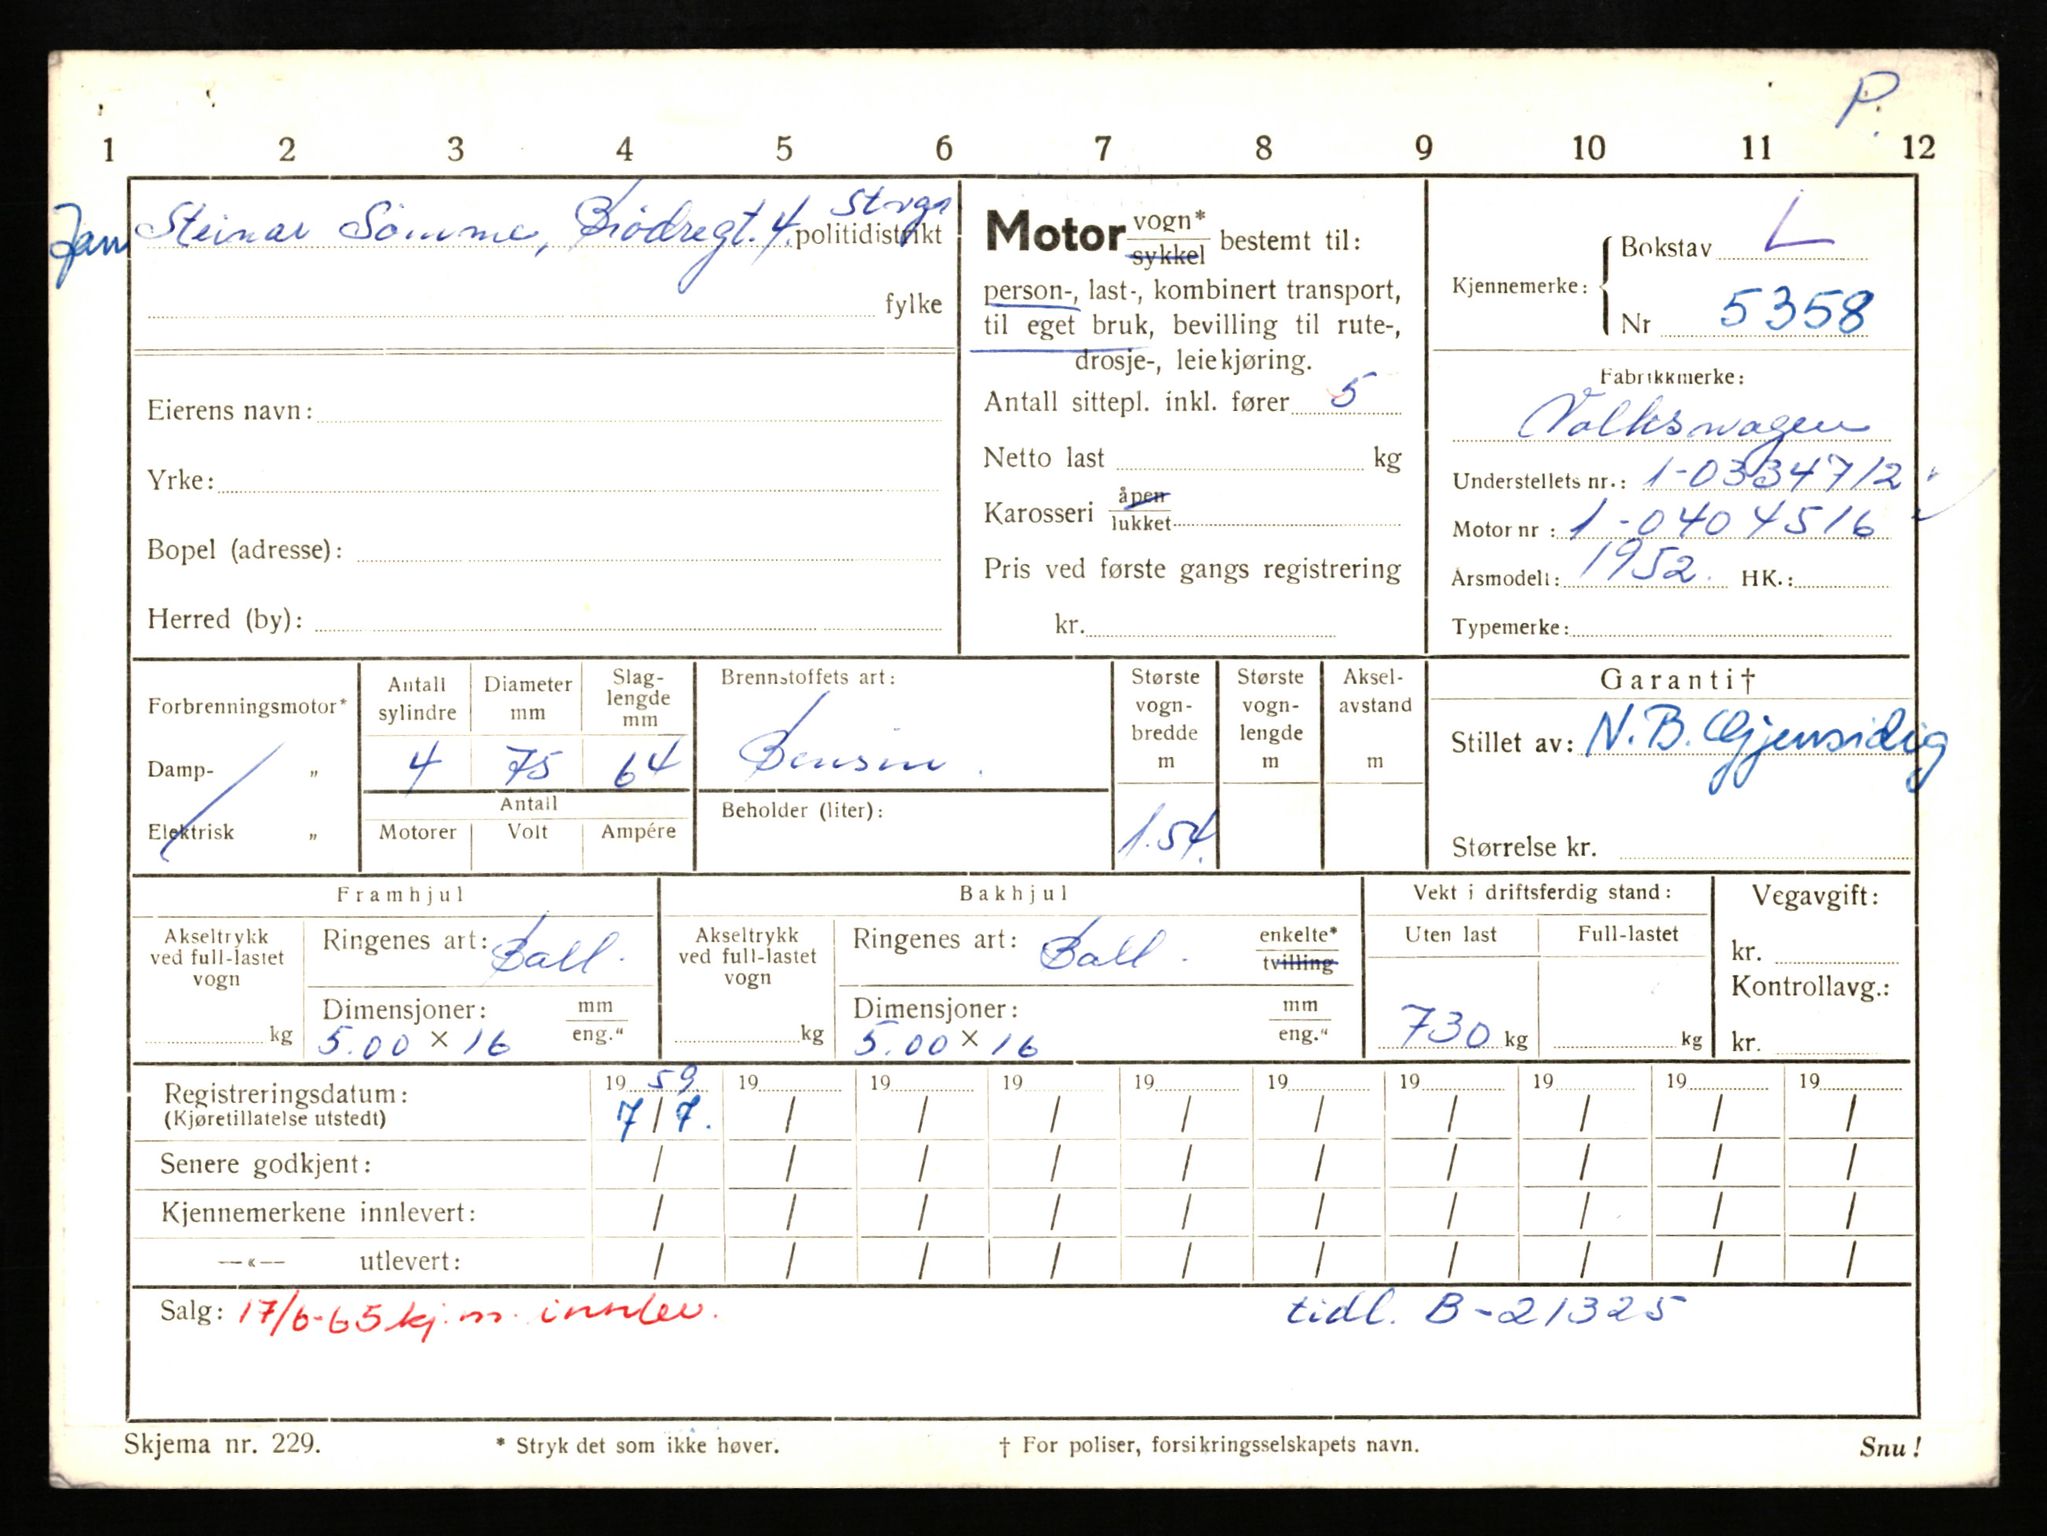 P.
1 2 3 4 5 6 7 8 9 10 11 12
Jan Steinar Sømme, Brødregt. 4. Stvgr politidistrikt
fylke
Eierens navn:
Yrke:
Bopel (adresse):
Herred (by):
Motor vogn* sykkel bestemt til:
person-, last-, kombinert transport,
til eget bruk, bevilling til rute-,
drosje-, leiekjøring.
Antall sittepl. inkl. fører 5
Netto last kg
Karosseri åpen lukket
Pris ved første gangs registrering
kr.
Kjennemerke: Bokstav L
Nr 5358
Fabrikkmerke:
Volkswagen
Understellets nr.: 1-0334712
Motor nr: 1-0404516
Årsmodell: 1952. HK.:
Typemerke:
Forbrenningsmotor*
Damp- „
Elektrisk „
Antall sylindre 4
Diameter mm 75
Slag-lengde mm 64
Antall
Motorer Volt Ampére
Brennstoffets art:
Bensin.
Beholder (liter):
Største vogn-bredde m 1.54.
Største vogn-lengde m
Aksel-avstand m
Garanti†
Stillet av: N.B. Gjensidig
Størrelse kr.
Framhjul
Akseltrykk ved full-lastet vogn
kg
Ringenes art: Ball.
Dimensjoner: mm
5.00 × 16 eng."
Bakhjul
Akseltrykk ved full-lastet vogn
kg
Ringenes art: Ball. enkelte* tvilling
Dimensjoner: mm
5.00 × 16 eng."
Vekt i driftsferdig stand:
Uten last Full-lastet
730 kg kg
Vegavgift:
kr.
Kontrollavg.:
kr.
Registreringsdatum: 19 59 19 19 19 19 19 19 19 19 19
(Kjøretillatelse utstedt) 7/7. / / / / / / / / /
Senere godkjent: / / / / / / / / / /
Kjennemerkene innlevert: / / / / / / / / / /
—«— utlevert: / / / / / / / / / /
Salg: 17/6-65 kj.m. innlev. tidl. B-21325
Skjema nr. 229. * Stryk det som ikke høver. † For poliser, forsikringsselskapets navn. Snu!